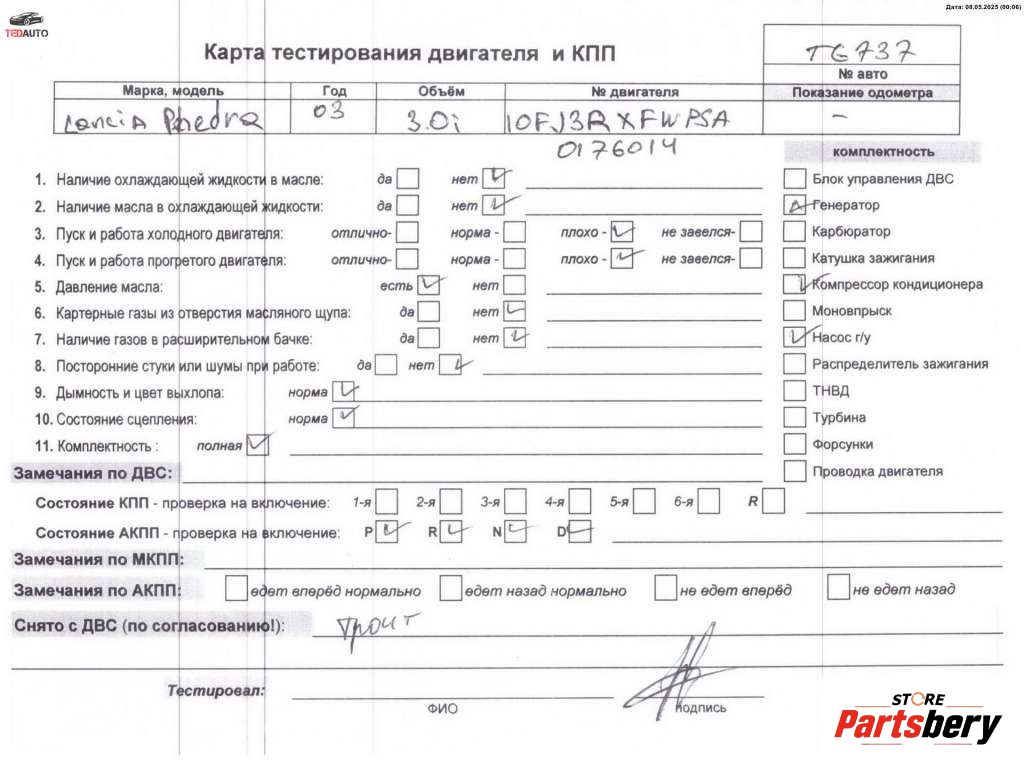 Дата: 08.05.2025 (00:06)
TEDAUTO
Карта тестирования двигателя и КПП
TG737
№ авто
Марка, модель Год Объём № двигателя Показание одометра
Lancia Phedra 03 3.0i 10FJ3RXFWPSA –
0176014
комплектность
1. Наличие охлаждающей жидкости в масле: да нет Блок управления ДВС
2. Наличие масла в охлаждающей жидкости: да нет Генератор
3. Пуск и работа холодного двигателя: отлично- норма - плохо - не завелся- Карбюратор
4. Пуск и работа прогретого двигателя: отлично- норма - плохо - не завелся- Катушка зажигания
5. Давление масла: есть нет Компрессор кондиционера
6. Картерные газы из отверстия масляного щупа: да нет Моновпрыск
7. Наличие газов в расширительном бачке: да нет Насос г/у
8. Посторонние стуки или шумы при работе: да нет Распределитель зажигания
9. Дымность и цвет выхлопа: норма ТНВД
10. Состояние сцепления: норма Турбина
11. Комплектность : полная Форсунки
Замечания по ДВС: Проводка двигателя
Состояние КПП - проверка на включение: 1-я 2-я 3-я 4-я 5-я 6-я R
Состояние АКПП - проверка на включение: P R N D
Замечания по МКПП:
Замечания по АКПП: едет вперёд нормально едет назад нормально не едет вперёд не едет назад
Снято с ДВС (по согласованию!): троит
Тестировал:
ФИО подпись
STORE
Partsbery